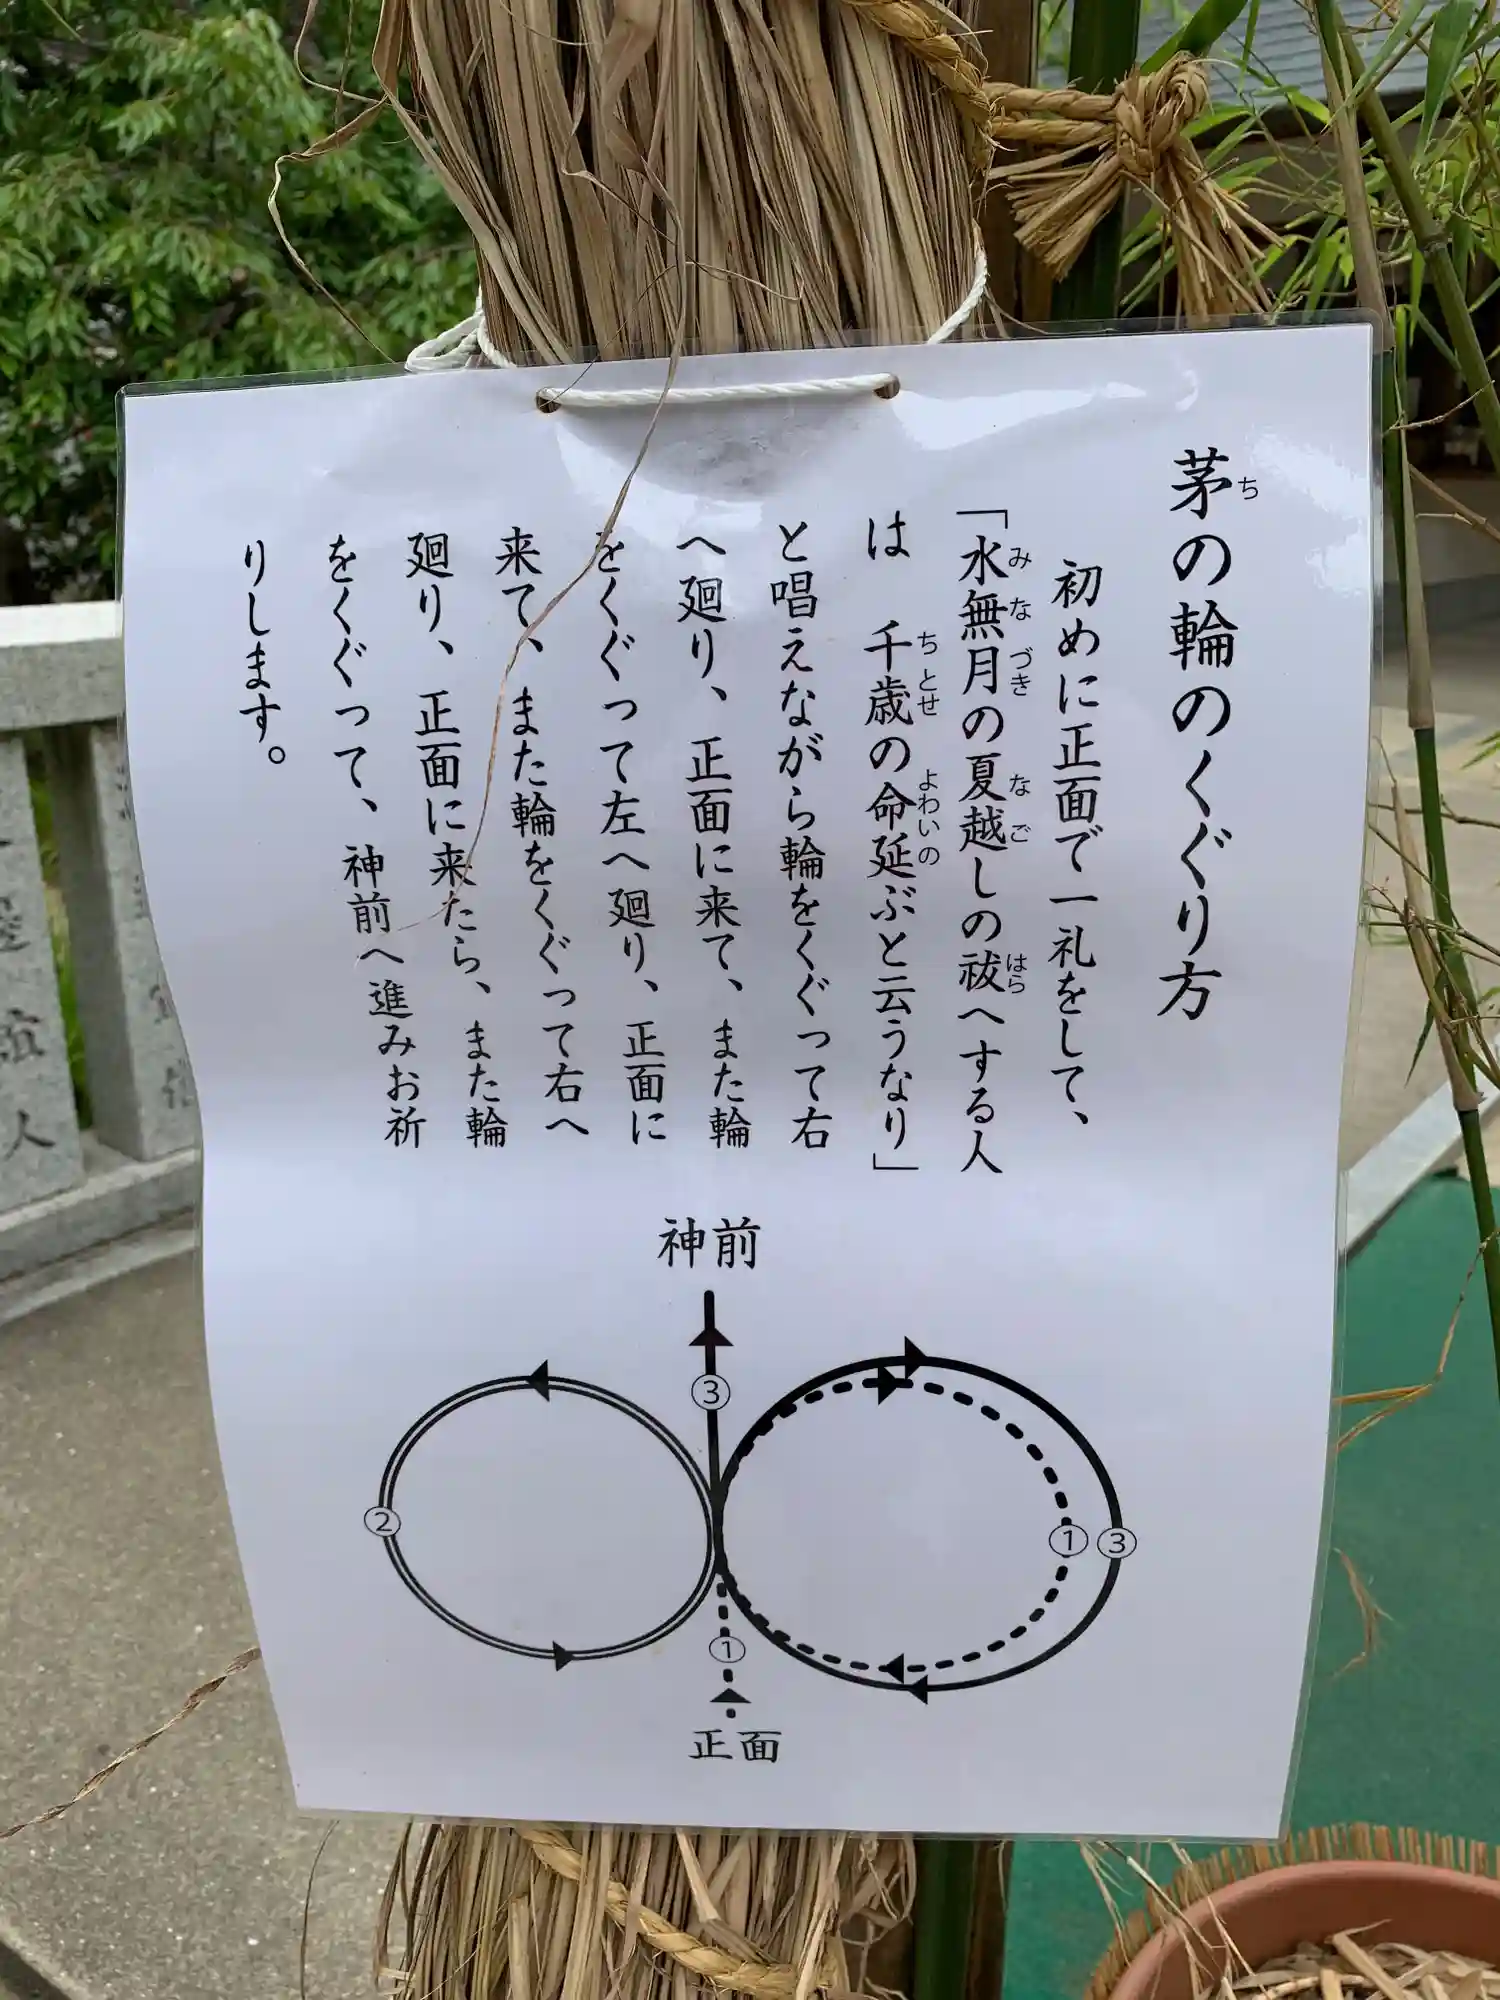 茅の輪のくぐり方
ち
初めに正面で一礼をして、
「水無月の夏越しの祓へする人
みなづき なご はら
は 千歳の命延ぶと云うなり」
ちとせ よわいの
と唱えながら輪をくぐって右
へ廻り、正面に来て、また輪
をくぐって左へ廻り、正面に
来て、また輪をくぐって右へ
廻り、正面に来たら、また輪
をくぐって、神前へ進みお祈
りします。
神前
③
②
①
③
①
正面
人